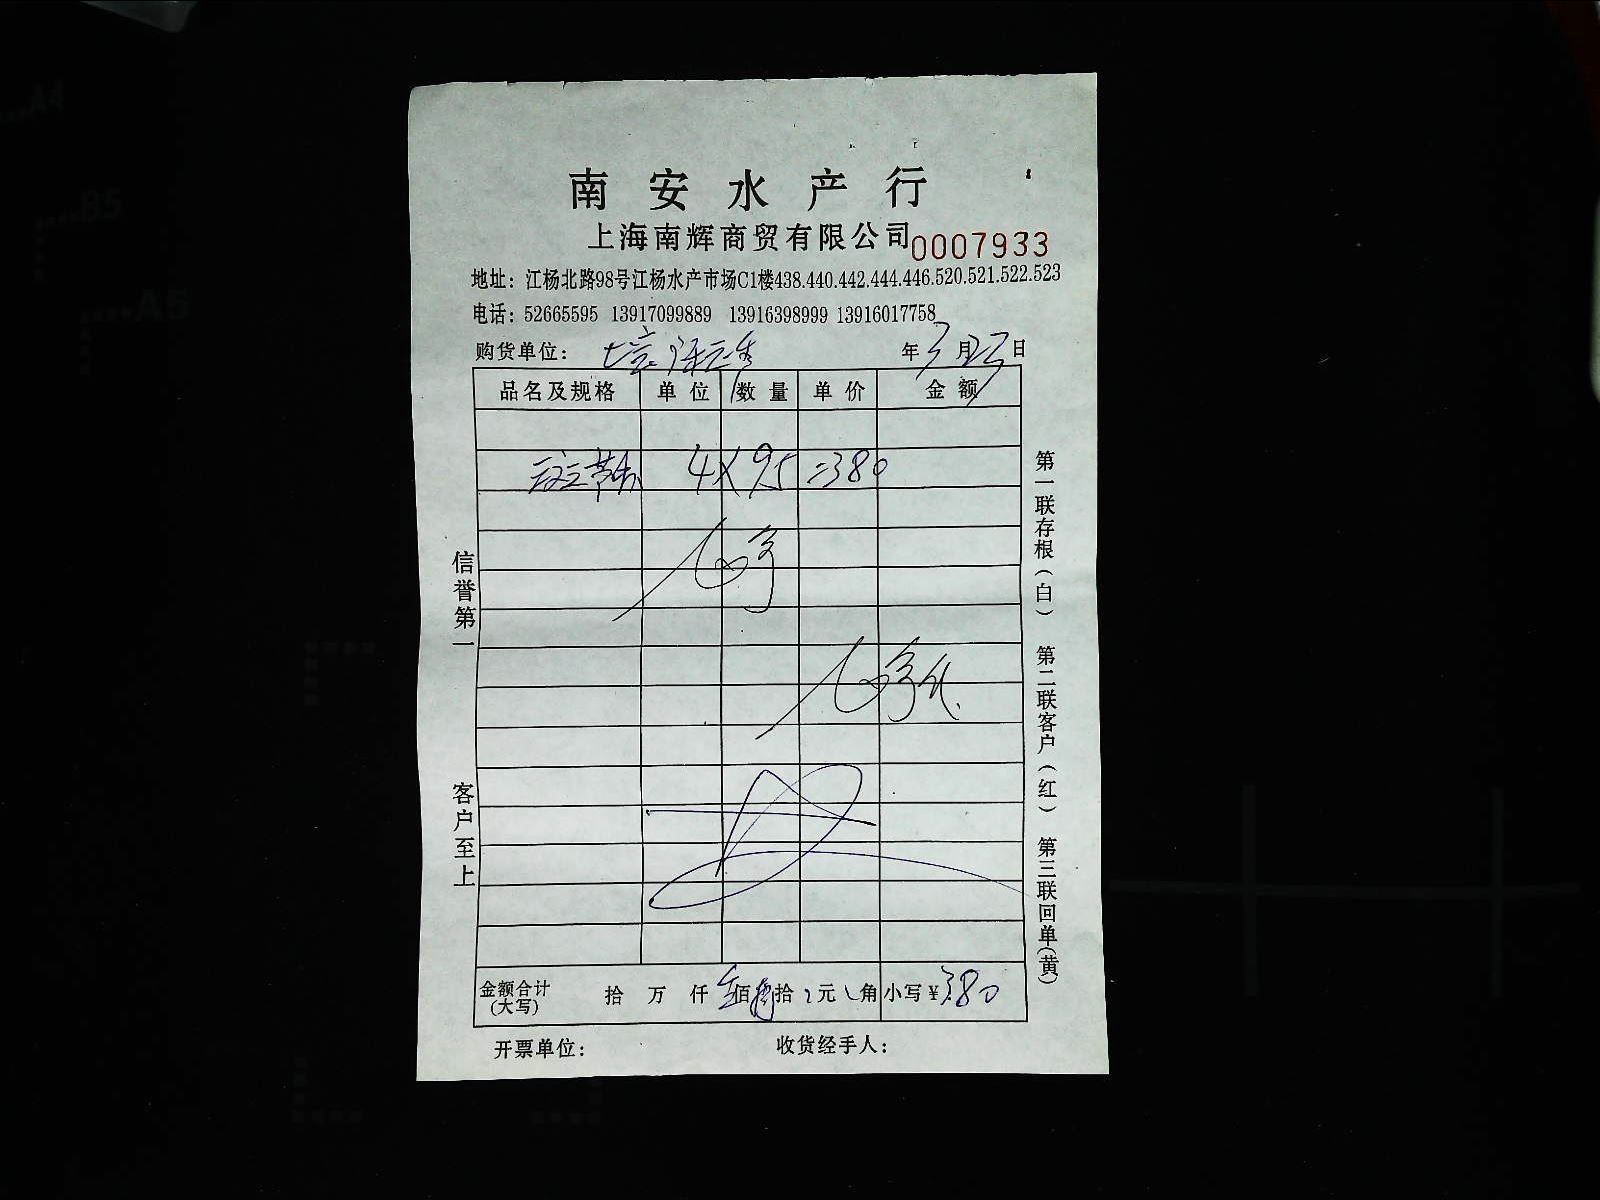 南安水产行
上海南辉商贸有限公司 0007933
地址：江杨北路98号江杨水产市场C1楼438.440.442.444.446.520.521.522.523
电话：52665595 13917099889 13916398999 13916017758
购货单位： 年3月23日
品名及规格 单位 数量 单价 金额
4×95=380
信誉第一
客户至上
第一联存根（白） 第二联客户（红） 第三联回单（黄）
金额合计（大写） 拾 万 仟 叁佰捌拾 元 角 小写￥380
开票单位： 收货经手人：
A4
B5
A5